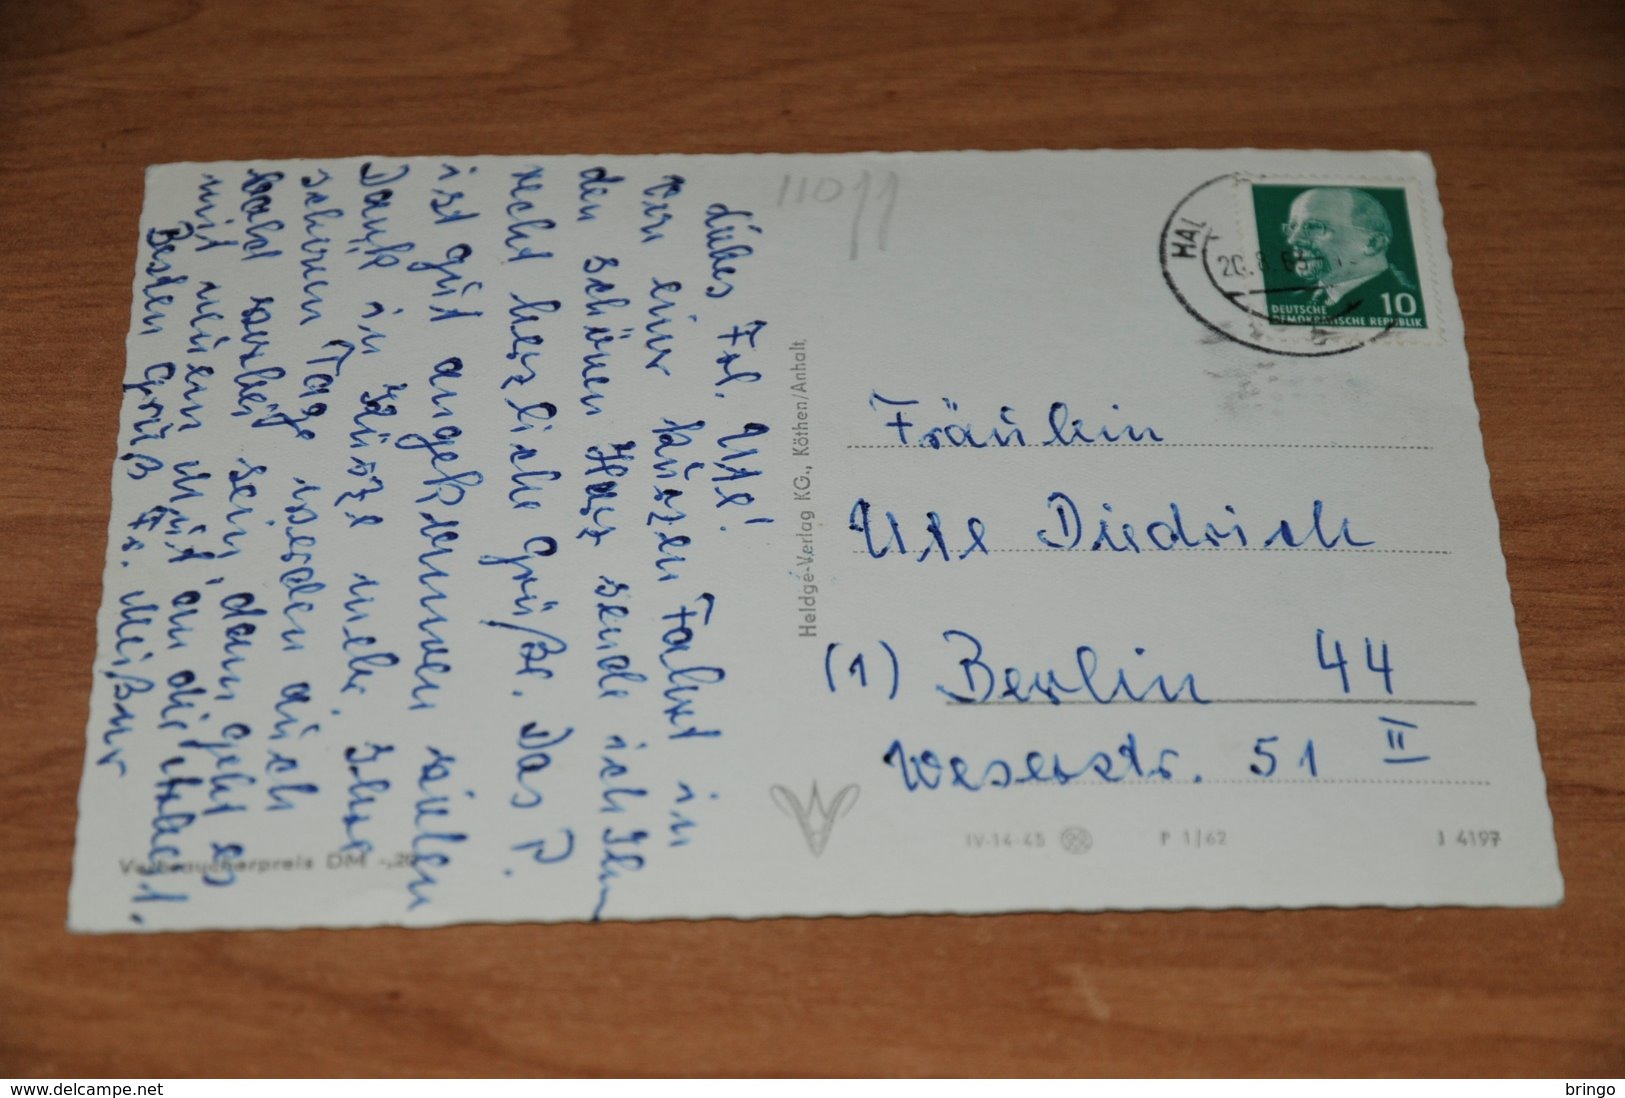 Liebes Frl. Ute!
Von einer kurzen Fahrt in
den schönen Harz sende ich Ihnen
recht herzliche Grüße. Das P.
ist gut angekommen vielen
Dank in Kürze mehr. Ihre
schönen Tage werden auch
bald vorbei sein, dann geht es
mit neuen Mut an die Arbeit.
Besten Gruß Fr. Meißner
Verbraucherpreis DM -,20
11011
Heldge-Verlag KG., Köthen/Anhalt
HAL
20.8.63
10
DEUTSCHE
DEMOKRATISCHE REPUBLIK
Fräulein
Ute Diedrich
(1) Berlin 44
Weserstr. 51 II
IV-14-45 P 1/62 J 4197
delcampe.net
bringo